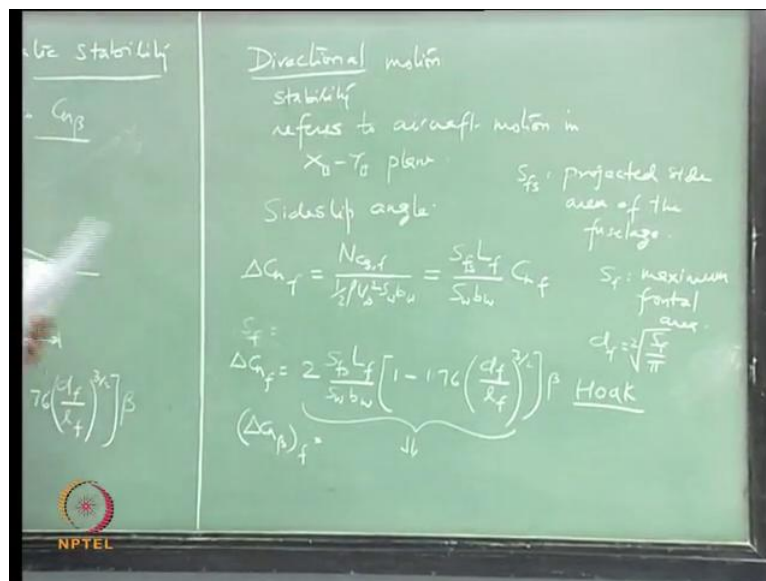 Stability
C_{nβ}
76 (d_f / l_f)^{3/2} ] β
Directional motion
stability
refers to aircraft motion in
X_B - Y_B plane.
Sideslip angle.
S_{fs} : projected side
area of the
fuselage.
ΔC_{n_f} = N_{cg,f} / (1/2 ρ V_∞^2 S_w b_w) = (S_{fs} L_f / S_w b_w) C_{n_f}
S_f : maximum
fontal
area.
d_f = 2 √(S_f / π)
S_f :
ΔC_{n_f} = 2 (S_{fs} L_f / S_w b_w) [ 1 - 1.76 (d_f / l_f)^{3/2} ] β Hoak
(ΔC_{nβ})_f =
NPTEL